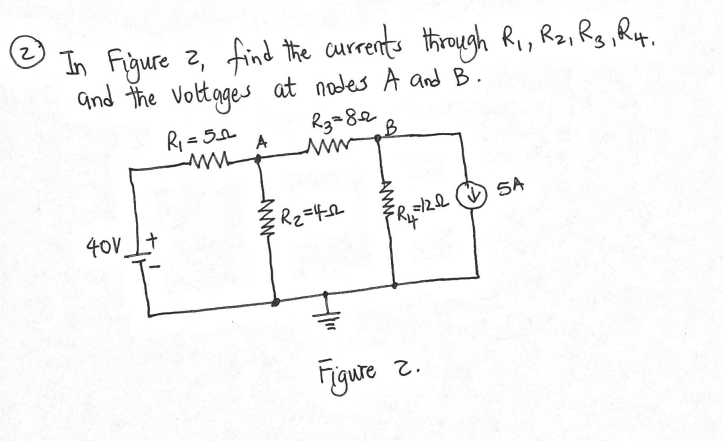 ② In Figure 2, find the currents through R1, R2, R3, R4.
and the voltages at nodes A and B.
R3=8Ω
R1=5Ω A B
R2=4Ω R4=12Ω 5A
40V + -
Figure 2.